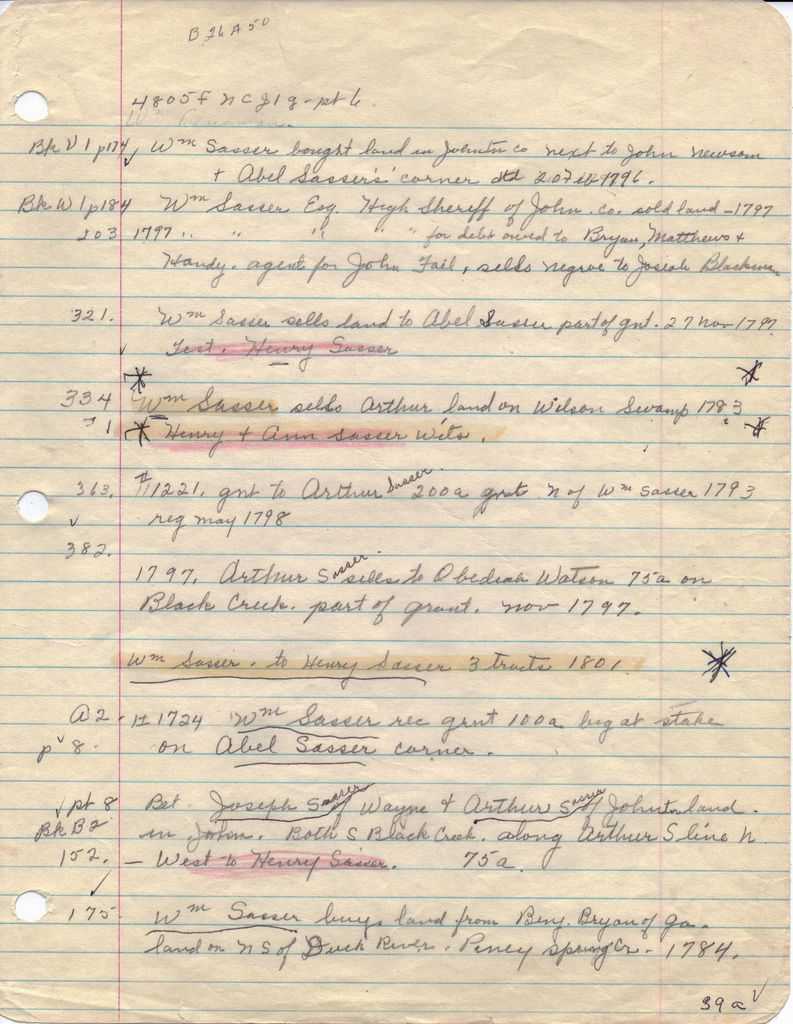 B 26 A 50
4805F NC J1g - pt 6.
Bk V 1 p174 Wm Sasser bought land in Johnston co next to John Newsom
+ Abel Sasser's corner dtd 20 1796.
Bk W 1 p184 Wm Sasser Esq. High Sheriff of John. Co. sold land - 1797
203 1797 " " " " " for debt owed to Bryan, Matthews +
Handy. agent for John Fail, sells negroe to Josiah
321. Wm Sasser sells land to Abel Sasser part of gnt. 27 Nov 1797
Test. Henry Sasser
334 Wm Sasser sells Arthur land on Wilson Swamp 1783
71 Henry + Ann Sasser Wits.
?
363. #1221. gnt to Arthur Sasser 200a gnt N of Wm Sasser 1793
reg may 1798
382.
1797. Arthur Sasser sells to Obediah Watson 75a on
Black Creek. part of grant. Nov 1797.
Wm Sasser. to Henry Sasser 3 tracts 1801.
A2. # 1724 Wm Sasser rec grnt 100a beg at stake
p 8. on Abel Sasser corner.
pt 8 Bet. Joseph Sasser of Wayne + Arthur Sasser of Johnton land.
Bk B2 in John. Both S Black Creek. along Arthur S line N.
152. - West to Henry Sasser. 75a.
175. Wm Sasser buys land from Benj. Bryan of Ga.
land on N S of Duck River. Piney Spring Cr - 1784.
39a